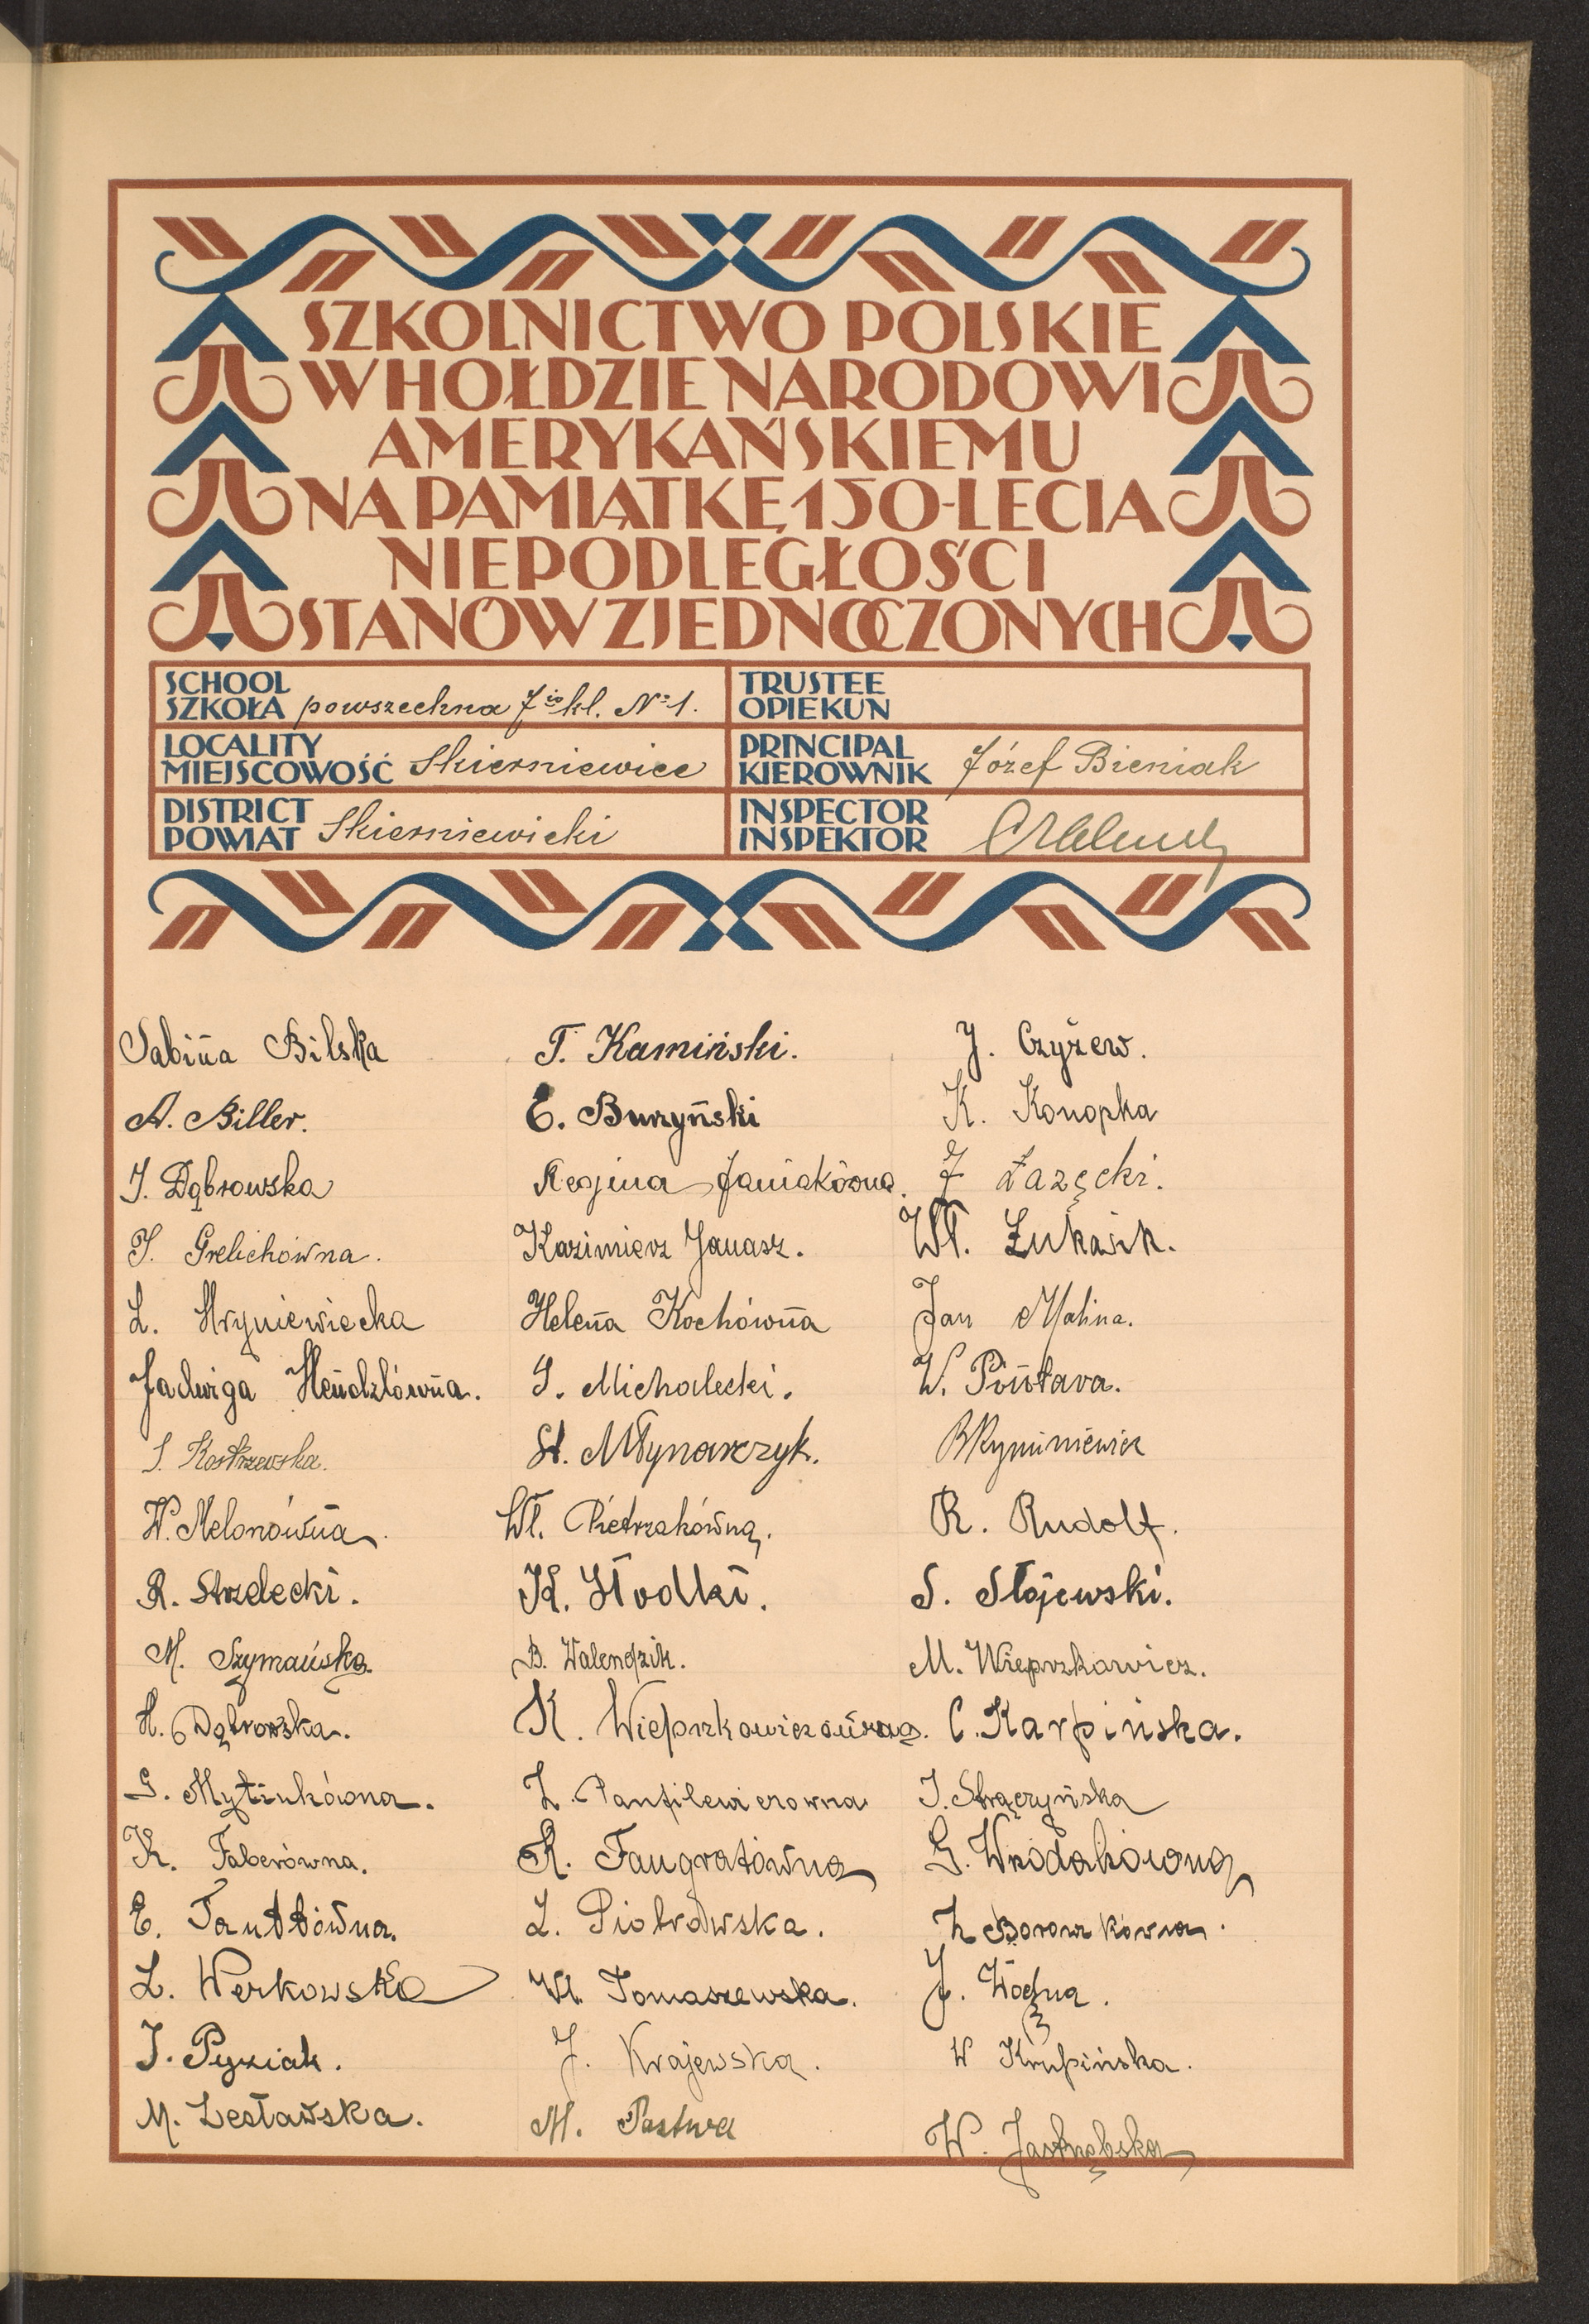 SZKOLNICTWO POLSKIE
W HOŁDZIE NARODOWI
AMERYKAŃSKIEMU
NA PAMIĄTKĘ 150-LECIA
NIEPODLEGŁOŚCI
STANÓW ZJEDNOCZONYCH
SCHOOL
SZKOŁA powszechna 7io kl. No 1.
TRUSTEE
OPIEKUN
LOCALITY
MIEJSCOWOŚĆ Skierniewice
PRINCIPAL
KIEROWNIK Józef Bieniak
DISTRICT
POWIAT Skierniewicki
INSPECTOR
INSPEKTOR
Sabina Bilska
A. Biller.
J. Dąbrowska
J. Grelichówna.
L. Hryniewiecka
Jadwiga Hendzlówna.
S. Kostrzewska.
W. Melonówna.
R. Strzelecki.
M. Szymańska.
H. Dąbrowska.
G. Mytinkówna.
K. Faberówna.
E. Tauttówna.
L. Werkowska
J. Pyziak.
M. Lesławska.
T. Kamiński.
E. Burzyński
Regina Janiakówna.
Kazimierz Janasz.
Helena Kochówna
S. Michalecki.
St. Młynarczyk.
Wł. Pietrzakówna.
K. Słodki.
B. Walendzik.
K. Wieprzkowiczówna.
L. Panfilewiczowna
R. Faugratówna
L. Piotrowska.
Wł. Tomaszewska.
J. Krajewska.
M. Pastwa
J. Czyżew.
K. Konopka
J Łazęcki.
Wł. Łukasik.
Jan Malina.
W. Piństava.
R. Rudolf.
S. Słojewski.
M. Wieprzkowicz.
C. Karpińska.
J. Strączyńska
G. Wrodakówna
L Borowikówna.
J. Woźna.
W Krupińska.
W. Jastrzębska